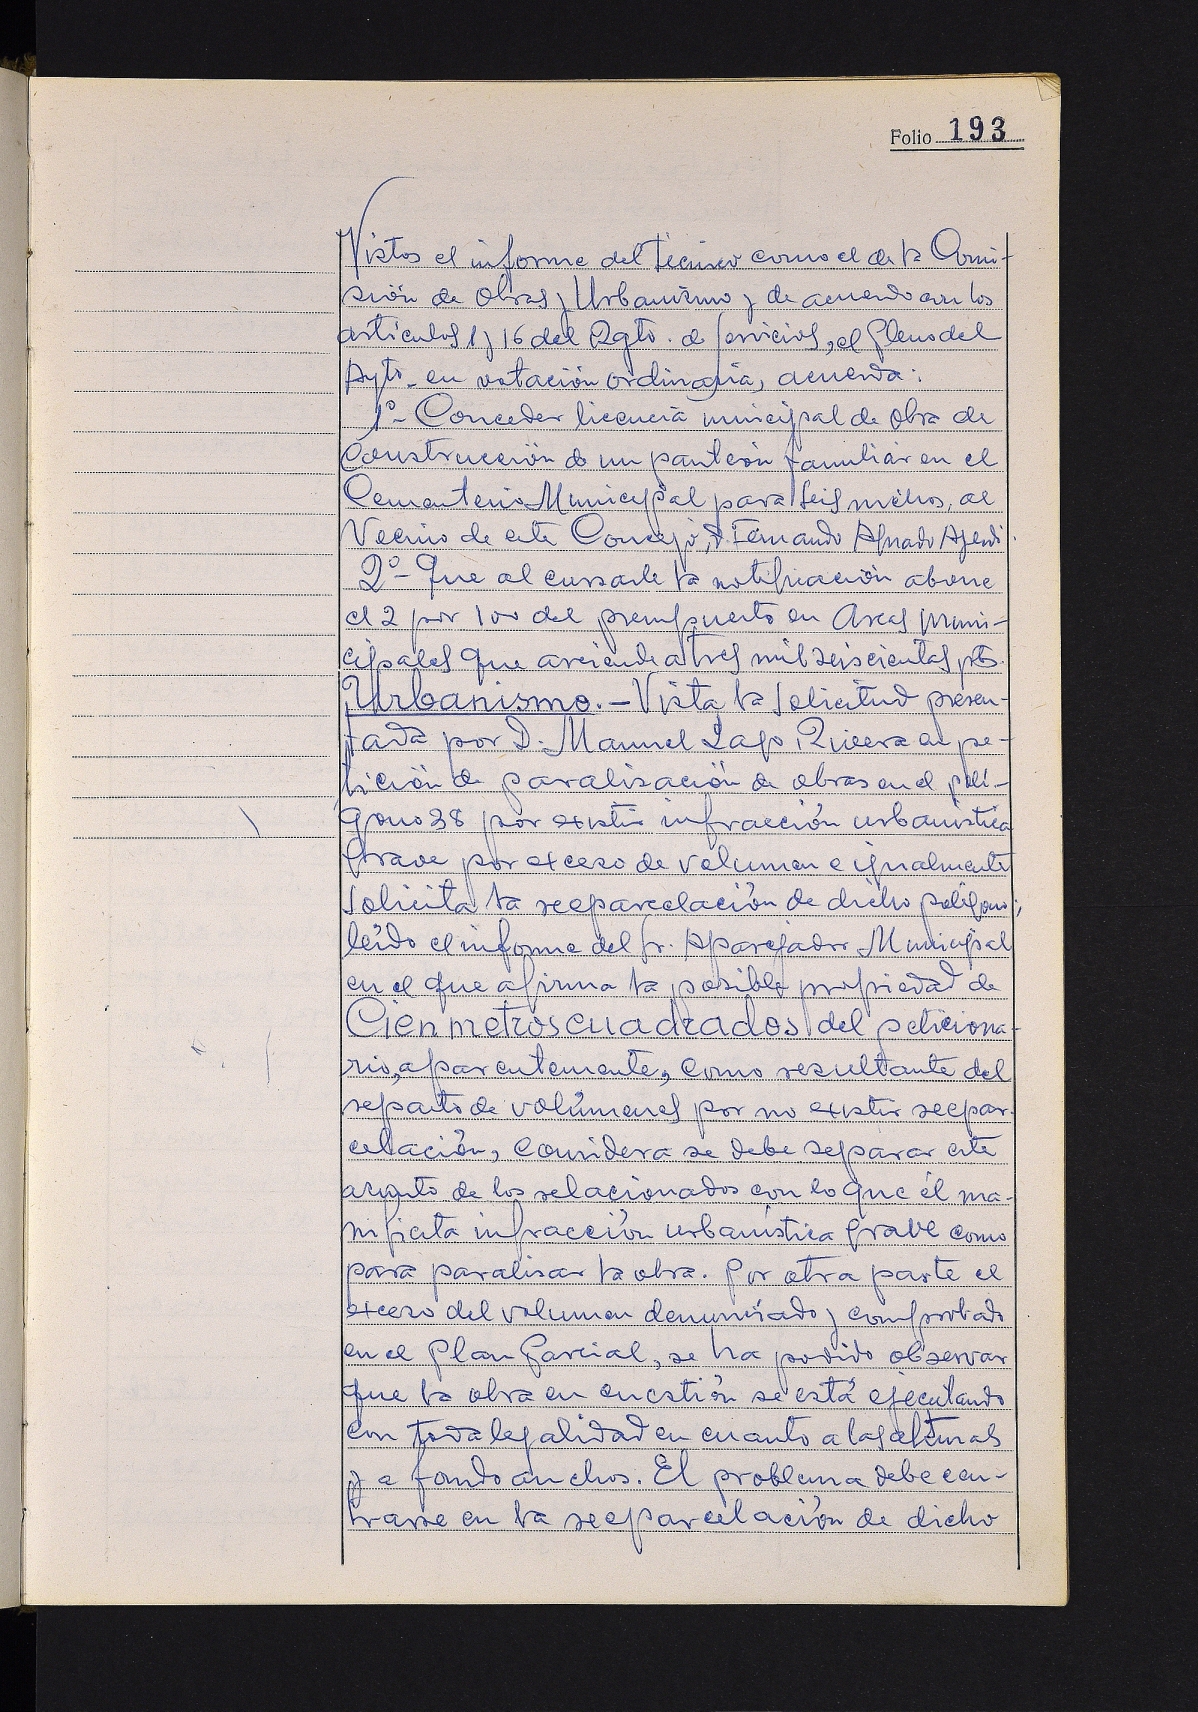 Folio 193
Vistos el informe del técnico como el de la Comi-
sión de Obras y Urbanismo y de acuerdo con los
artículos 1 y 16 del Rgto. de Servicios, el Pleno del
Ayto. en votación ordinaria, acuerda:
1º- Conceder licencia municipal de obra de
Construcción de un panteón familiar en el
Cementerio Municipal para seis nichos, al
Vecino de este Concejo, D. Fernando
2º- Que al cursarle la notificación abone
el 2 por 100 del presupuesto en Arcas Muni-
cipales que asciende a tres mil seiscientas pts.
Urbanismo. - Vista la solicitud presen-
tada por D. Manuel Lago Rivera en pe-
tición de paralisación de obras en el polí-
gono 38 por existir infracción urbanística
grave por exceso de volumen e igualmente
solicita la reeparcelación de dicho polígono;
leído el informe del Sr. Aparejador Municipal
en el que afirma la posible propiedad de
Cien metros cuadrados del peticiona-
rio, aparentemente, como resultante del
reparto de volúmenes por no existir reepar-
celación, considera se debe separar este
asunto de los relacionados con lo que él ma-
nifiesta infracción urbanística grave como
para paralisar la obra. Por otra parte el
exceso del volumen denunciado y comprobado
en el Plan Parcial, se ha podido observar
que la obra en cuestión se está ejecutando
con toda legalidad en cuanto a las alturas
y a fondo anchos. El problema debe cen-
trarse en la reeparcelación de dicho